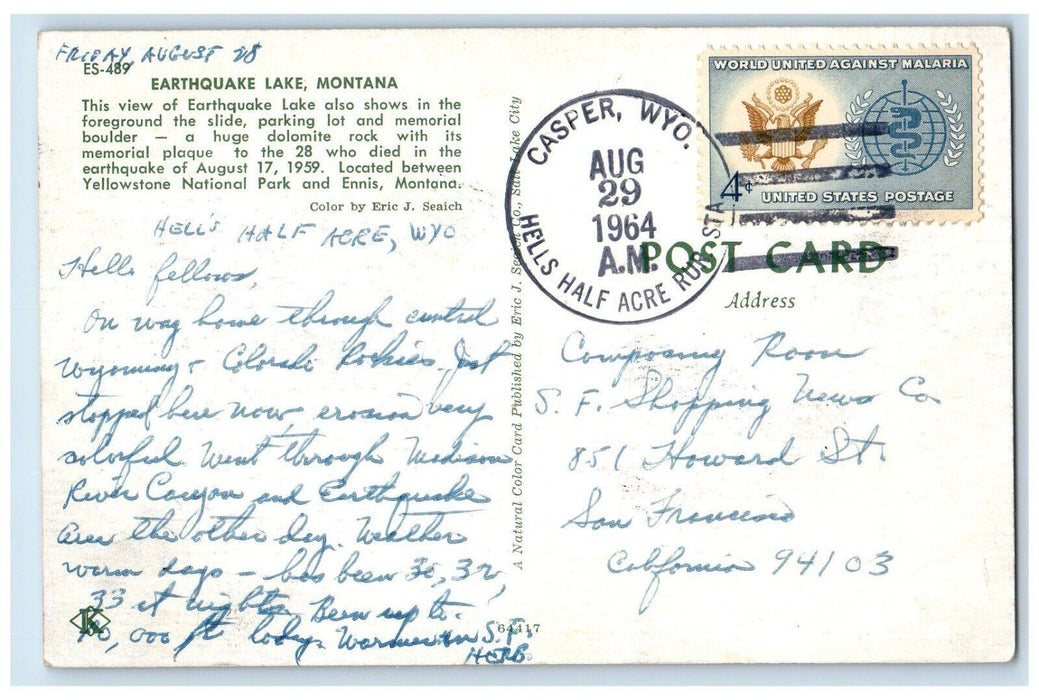 FRIDAY AUGUST 28
ES-489
EARTHQUAKE LAKE, MONTANA
This view of Earthquake Lake also shows in the
foreground the slide, parking lot and memorial
boulder — a huge dolomite rock with its
memorial plaque to the 28 who died in the
earthquake of August 17, 1959. Located between
Yellowstone National Park and Ennis, Montana.
Color by Eric J. Seaich
HELL'S HALF ACRE, WYO
Hello fellows,
On way home through central
Wyoming + Colorado Rockies. Just
stopped here now, erosion very
colorful. Went through Madison
River Canyon and Earthquake
Area the other day. Weather
warm days — has been 30, 32,
33 at nights. Been up to
10,000 ft today. Warmer in S.F.
HERB
A Natural Color Card Published by Eric J. Seaich Co., Salt Lake City
K
64417
CASPER, WYO.
AUG
29
1964
A.M.
HELLS HALF ACRE RUR. STA
WORLD UNITED AGAINST MALARIA
4¢
UNITED STATES POSTAGE
POST CARD
Address
Composing Room
S. F. Shopping News Co
851 Howard St.
San Francisco
California 94103